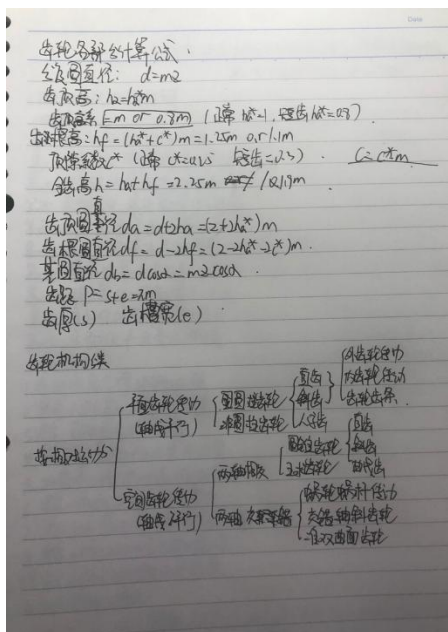 齿轮各部分计算公式
分度圆直径: d=mz
齿顶高: ha=ha*m
齿顶高系 [m or 0.8m] (正常 ha*=1, 短齿ha*=0.8)
齿根高: hf=(ha*+c*)m=1.25m or 1.1m
顶隙系数c* (正常 c*=0.25 短齿=0.3) C=c*m
全齿高h=ha+hf=2.25m /or 1.9m
齿顶圆直径da=d+2ha=(z+2ha*)m
齿根圆直径df=d-2hf=(z-2ha*-2c*)m
基圆直径db=dcosα=mzcosα
齿距 P=s+e=πm
齿厚(s) 齿槽宽(e)
齿轮机构分类
按相对运动分
平面齿轮传动
(轴线平行)
圆柱齿轮
非圆柱齿轮
直齿
斜齿
人字齿
外齿轮传动
内齿轮传动
齿轮齿条
空间齿轮传动
(轴线不平行)
两轴相交
圆锥齿轮
直齿
斜齿
曲线齿
两轴交错
蜗轮蜗杆传动
交错轴斜齿轮
准双曲面齿轮